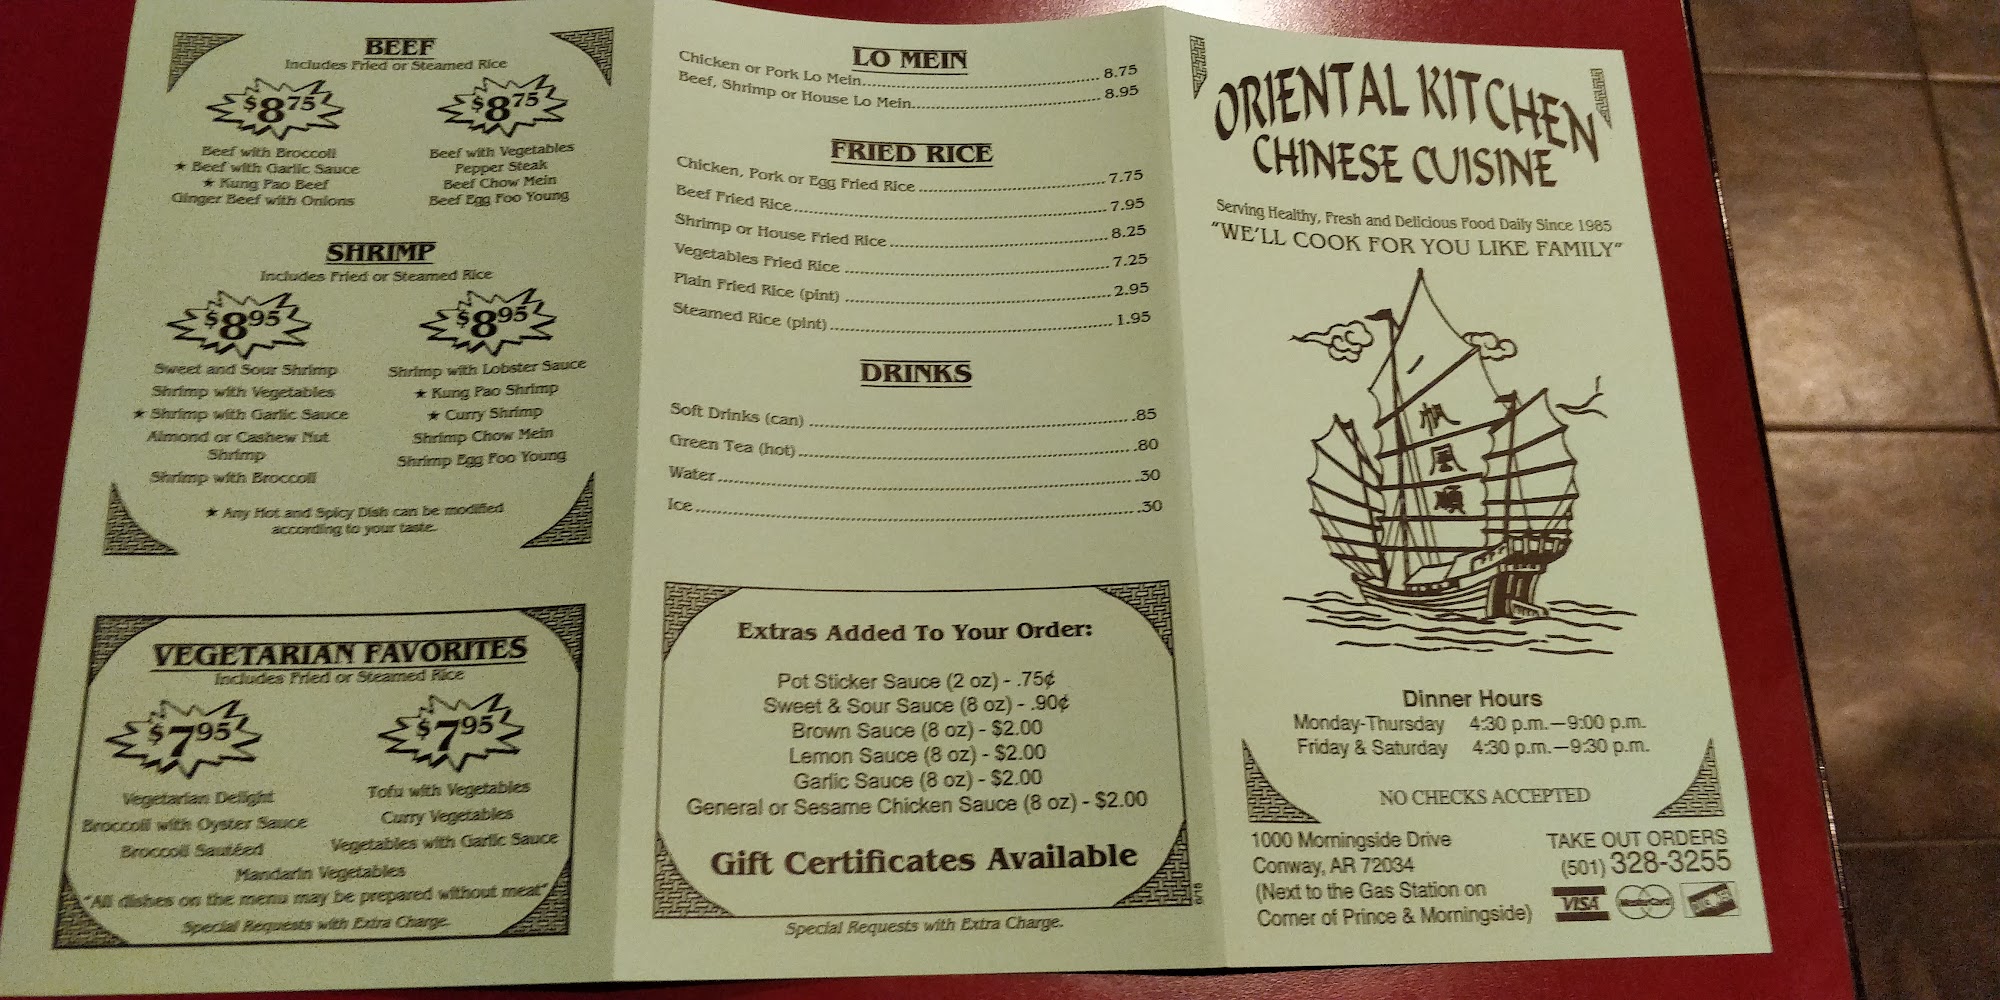 BEEF
Includes Fried or Steamed Rice
$8.75
Beef with Broccoli
★ Beef with Garlic Sauce
★ Kung Pao Beef
Ginger Beef with Onions
$8.75
Beef with Vegetables
Pepper Steak
Beef Chow Mein
Beef Egg Foo Young
SHRIMP
Includes Fried or Steamed Rice
$8.95
Sweet and Sour Shrimp
Shrimp with Vegetables
★ Shrimp with Garlic Sauce
Almond or Cashew Nut
Shrimp
Shrimp with Broccoli
$8.95
Shrimp with Lobster Sauce
★ Kung Pao Shrimp
★ Curry Shrimp
Shrimp Chow Mein
Shrimp Egg Foo Young
★ Any Hot and Spicy Dish can be modified
according to your taste.
VEGETARIAN FAVORITES
Includes Fried or Steamed Rice
$7.95
Vegetarian Delight
Broccoli with Oyster Sauce
Broccoli Sautéed
$7.95
Tofu with Vegetables
Curry Vegetables
Vegetables with Garlic Sauce
Mandarin Vegetables
"All dishes on the menu may be prepared without meat"
Special Requests with Extra Charge.
LO MEIN
Chicken or Pork Lo Mein 8.75
Beef, Shrimp or House Lo Mein 8.95
FRIED RICE
Chicken, Pork or Egg Fried Rice 7.75
Beef Fried Rice 7.95
Shrimp or House Fried Rice 8.25
Vegetables Fried Rice 7.25
Plain Fried Rice (pint) 2.95
Steamed Rice (pint) 1.95
DRINKS
Soft Drinks (can) .85
Green Tea (hot) .80
Water .30
Ice .30
Extras Added To Your Order:
Pot Sticker Sauce (2 oz) - .75¢
Sweet & Sour Sauce (8 oz) - .90¢
Brown Sauce (8 oz) - $2.00
Lemon Sauce (8 oz) - $2.00
Garlic Sauce (8 oz) - $2.00
General or Sesame Chicken Sauce (8 oz) - $2.00
Gift Certificates Available
Special Requests with Extra Charge.
ORIENTAL KITCHEN
CHINESE CUISINE
Serving Healthy, Fresh and Delicious Food Daily Since 1985
"WE'LL COOK FOR YOU LIKE FAMILY"
帆
風
順
Dinner Hours
Monday-Thursday 4:30 p.m.—9:00 p.m.
Friday & Saturday 4:30 p.m.—9:30 p.m.
NO CHECKS ACCEPTED
1000 Morningside Drive
Conway, AR 72034
(Next to the Gas Station on
Corner of Prince & Morningside)
TAKE OUT ORDERS
(501) 328-3255
VISA MasterCard